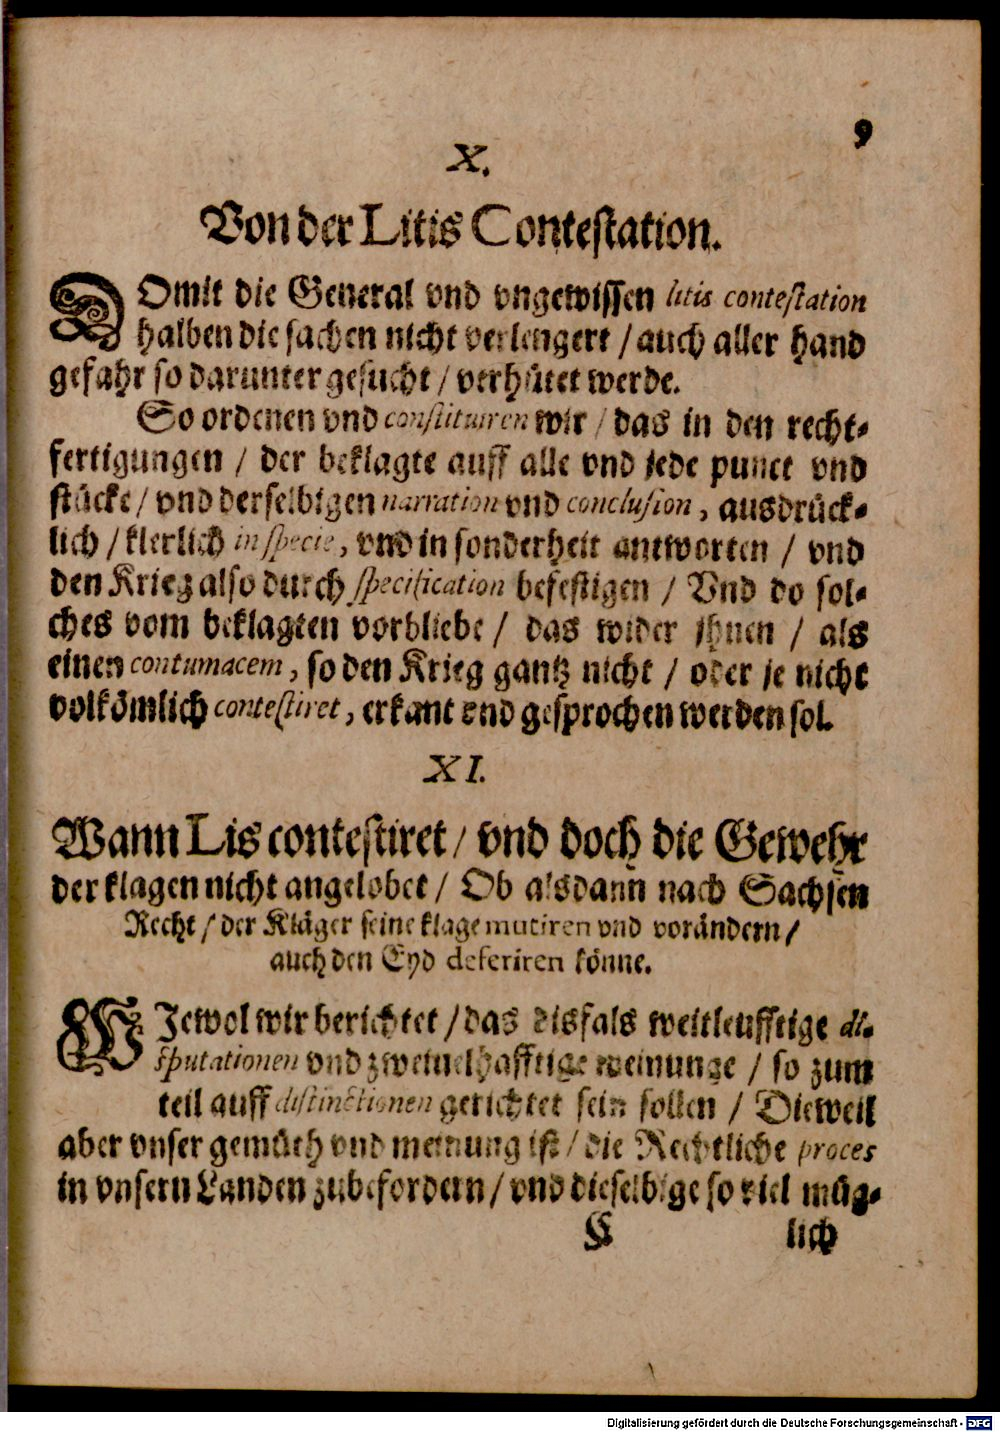 9
X.
Von der Litis Contestation.
DOmit die General vnd vngewissen litis contestation
halben die sachen nicht verlengert / auch aller hand
gefahr so darunter gesucht / verhütet werde.
So ordenen vnd constituiren wir / das in den recht-
fertigungen / der beklagte auff alle vnd jede punct vnd
stücke / vnd derselbigen narration vnd conclusion, ausdrück-
lich / klerlich in specie, vnd in sonderheit antworten / vnd
den Krieg also durch specification befestigen / Vnd do sol-
ches vom beklagten vorbliebe / das wider jhnen / als
einen contumacem, so den Krieg gantz nicht / oder je nicht
volkömlich contestiret, erkant vnd gesprochen werden sol.
XI.
Wann Lis contestiret / vnd doch die Gewehr
der klagen nicht angelobet / Ob alsdann nach Sachsen
Recht / der Kläger seine klage mutiren vnd vorändern /
auch den Eyd deferiren könne.
WJewol wir berichtet / das disfals weitleufftige di-
sputationen vnd zweiuelhafftige meinunge / so zum
teil auff distinctionen gerichtet sein sollen / Dieweil
aber vnser gemüth vnd meinung ist / die Rechtliche proces
in vnsern Landen zubefordern / vnd dieselbige so viel müg-
C lich
Digitalisierung gefördert durch die Deutsche Forschungsgemeinschaft - DFG